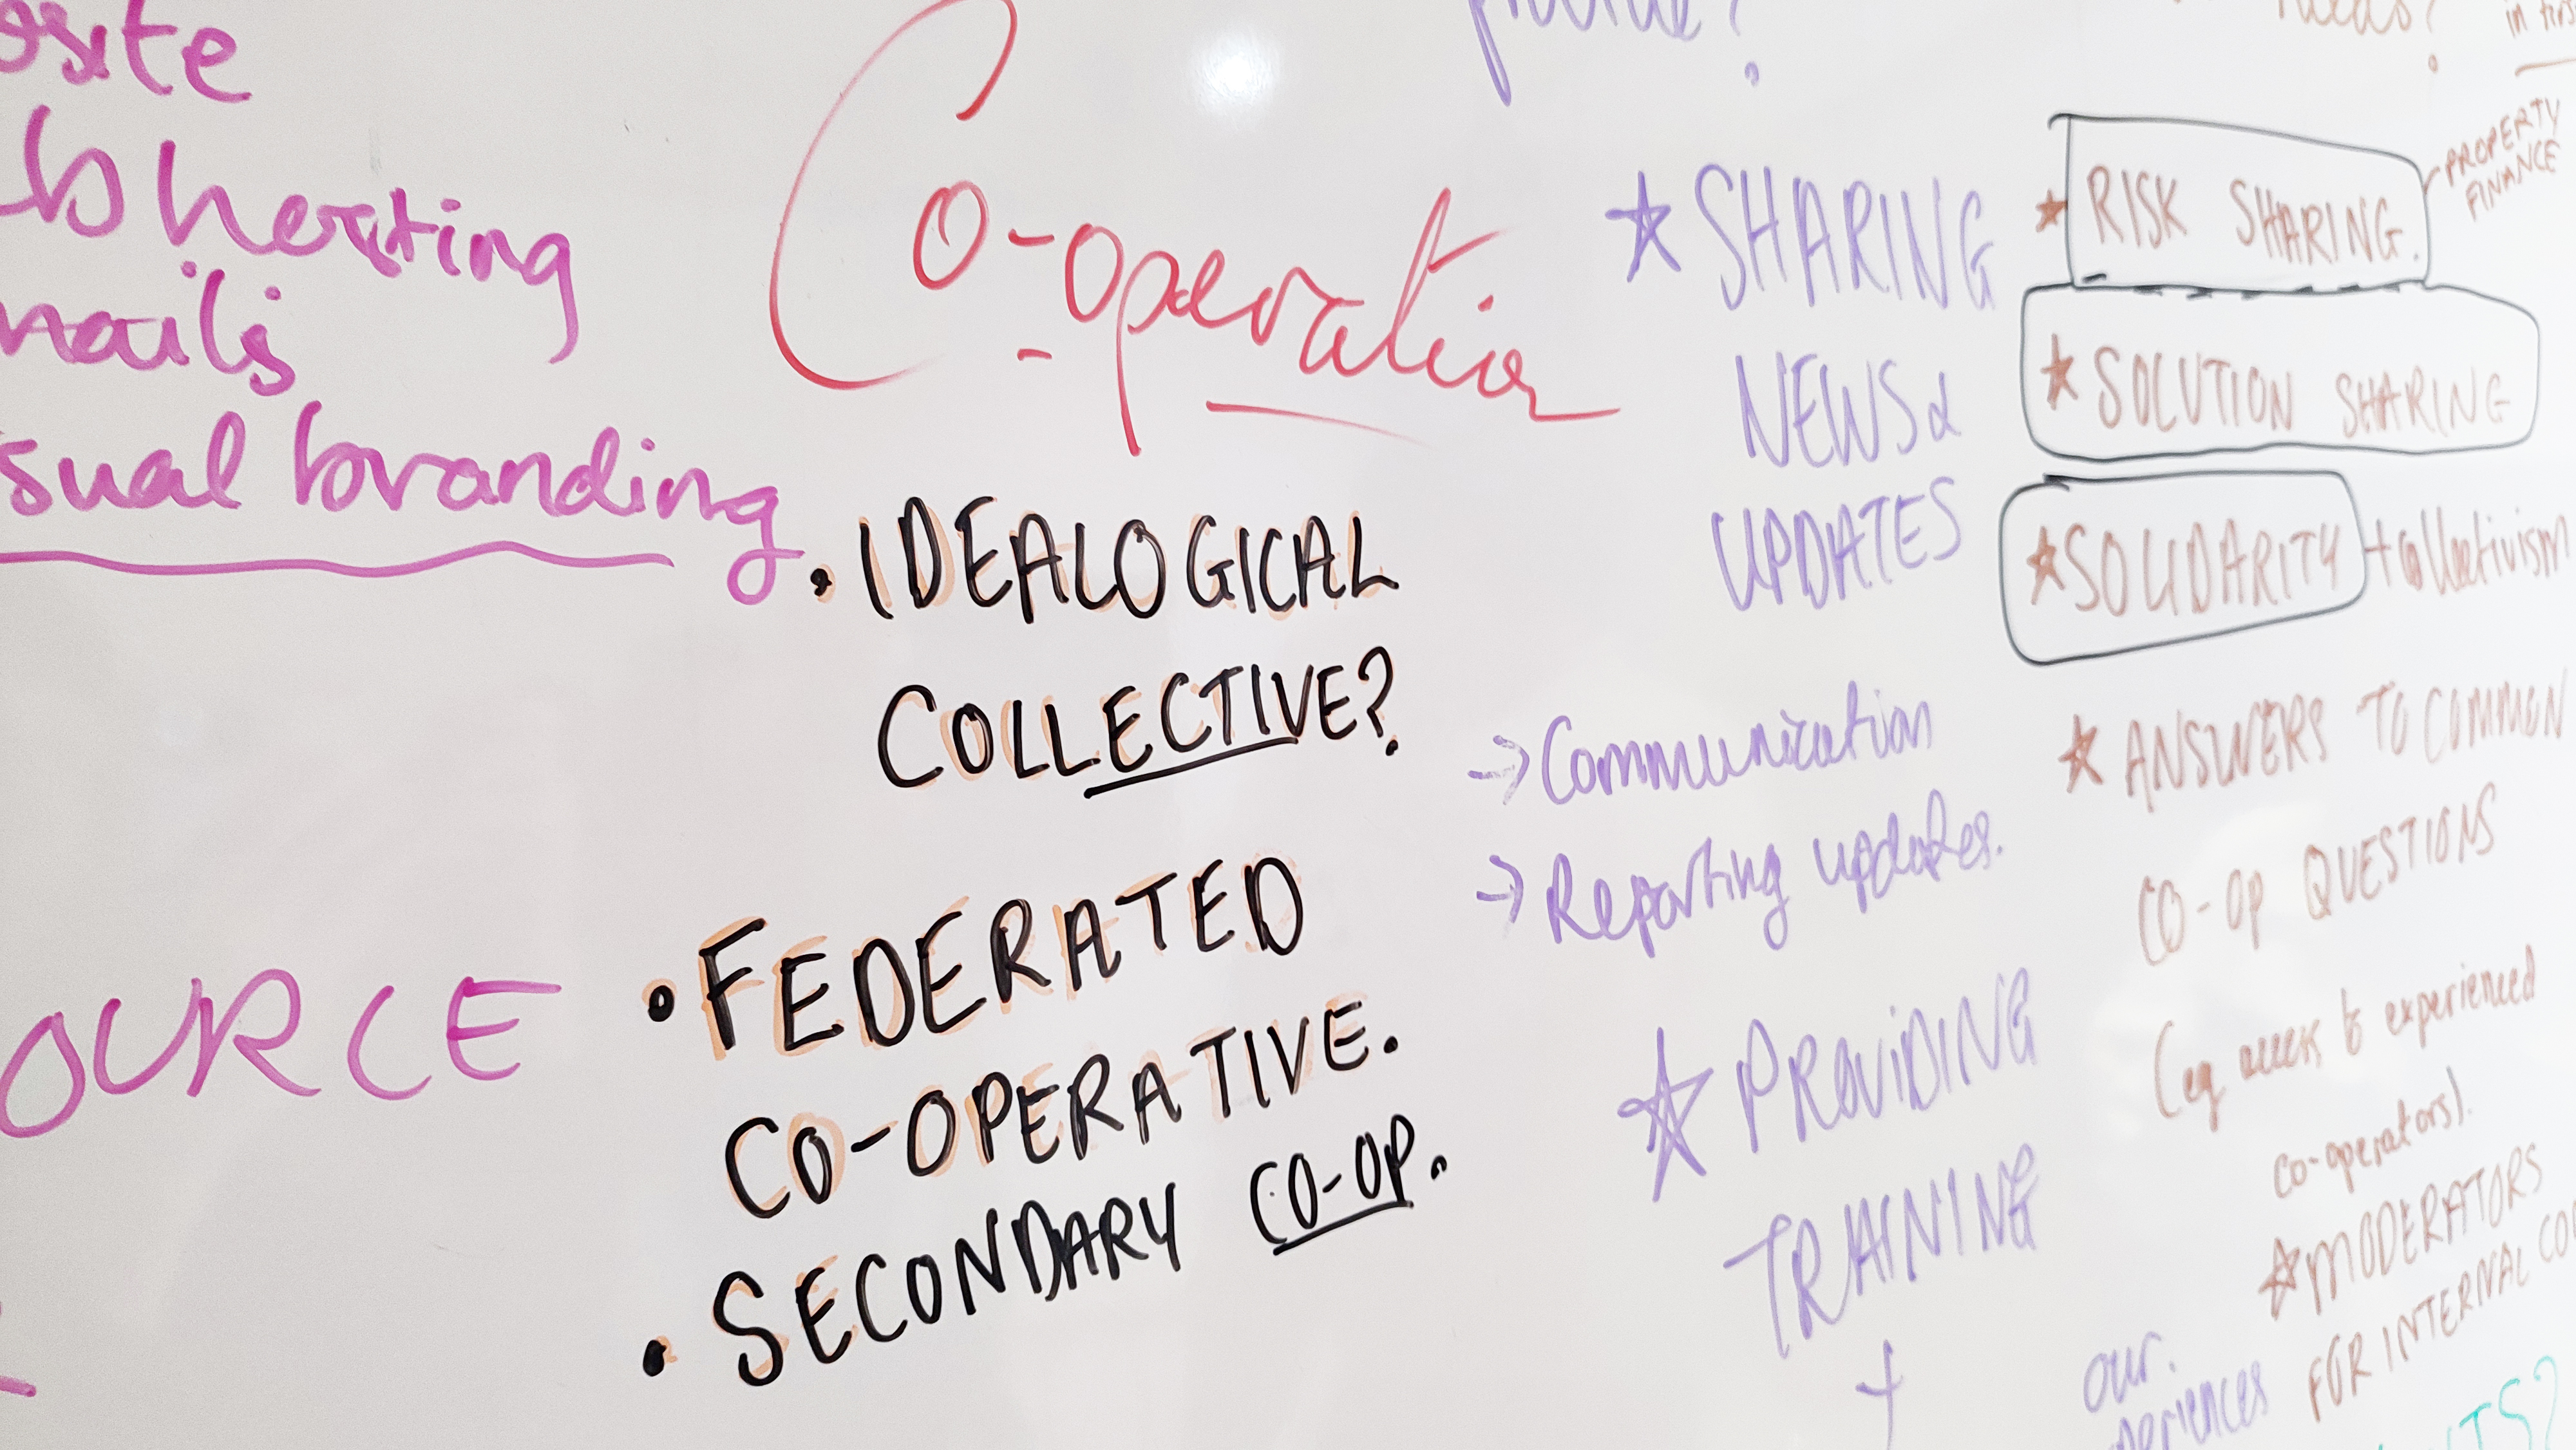 site
hosting
mails
sual branding
OURCE
Co-operation
• IDEALOGICAL
COLLECTIVE?
• FEDERATED
CO-OPERATIVE.
• SECONDARY CO-OP.
provide?
★ SHARING
NEWS &
UPDATES
→ Communication
→ Reporting updates.
★ PROVIDING
TRAINING
+
our
periences
needs?
in firs
★ RISK SHARING.
PROPERTY
FINANCE
★ SOLUTION SHARING
★ SOLIDARITY + collectivism
★ ANSWERS TO COMMON
CO-OP QUESTIONS
(eg access to experienced
co-operators).
★ MODERATORS
FOR INTERNAL CO
TS?